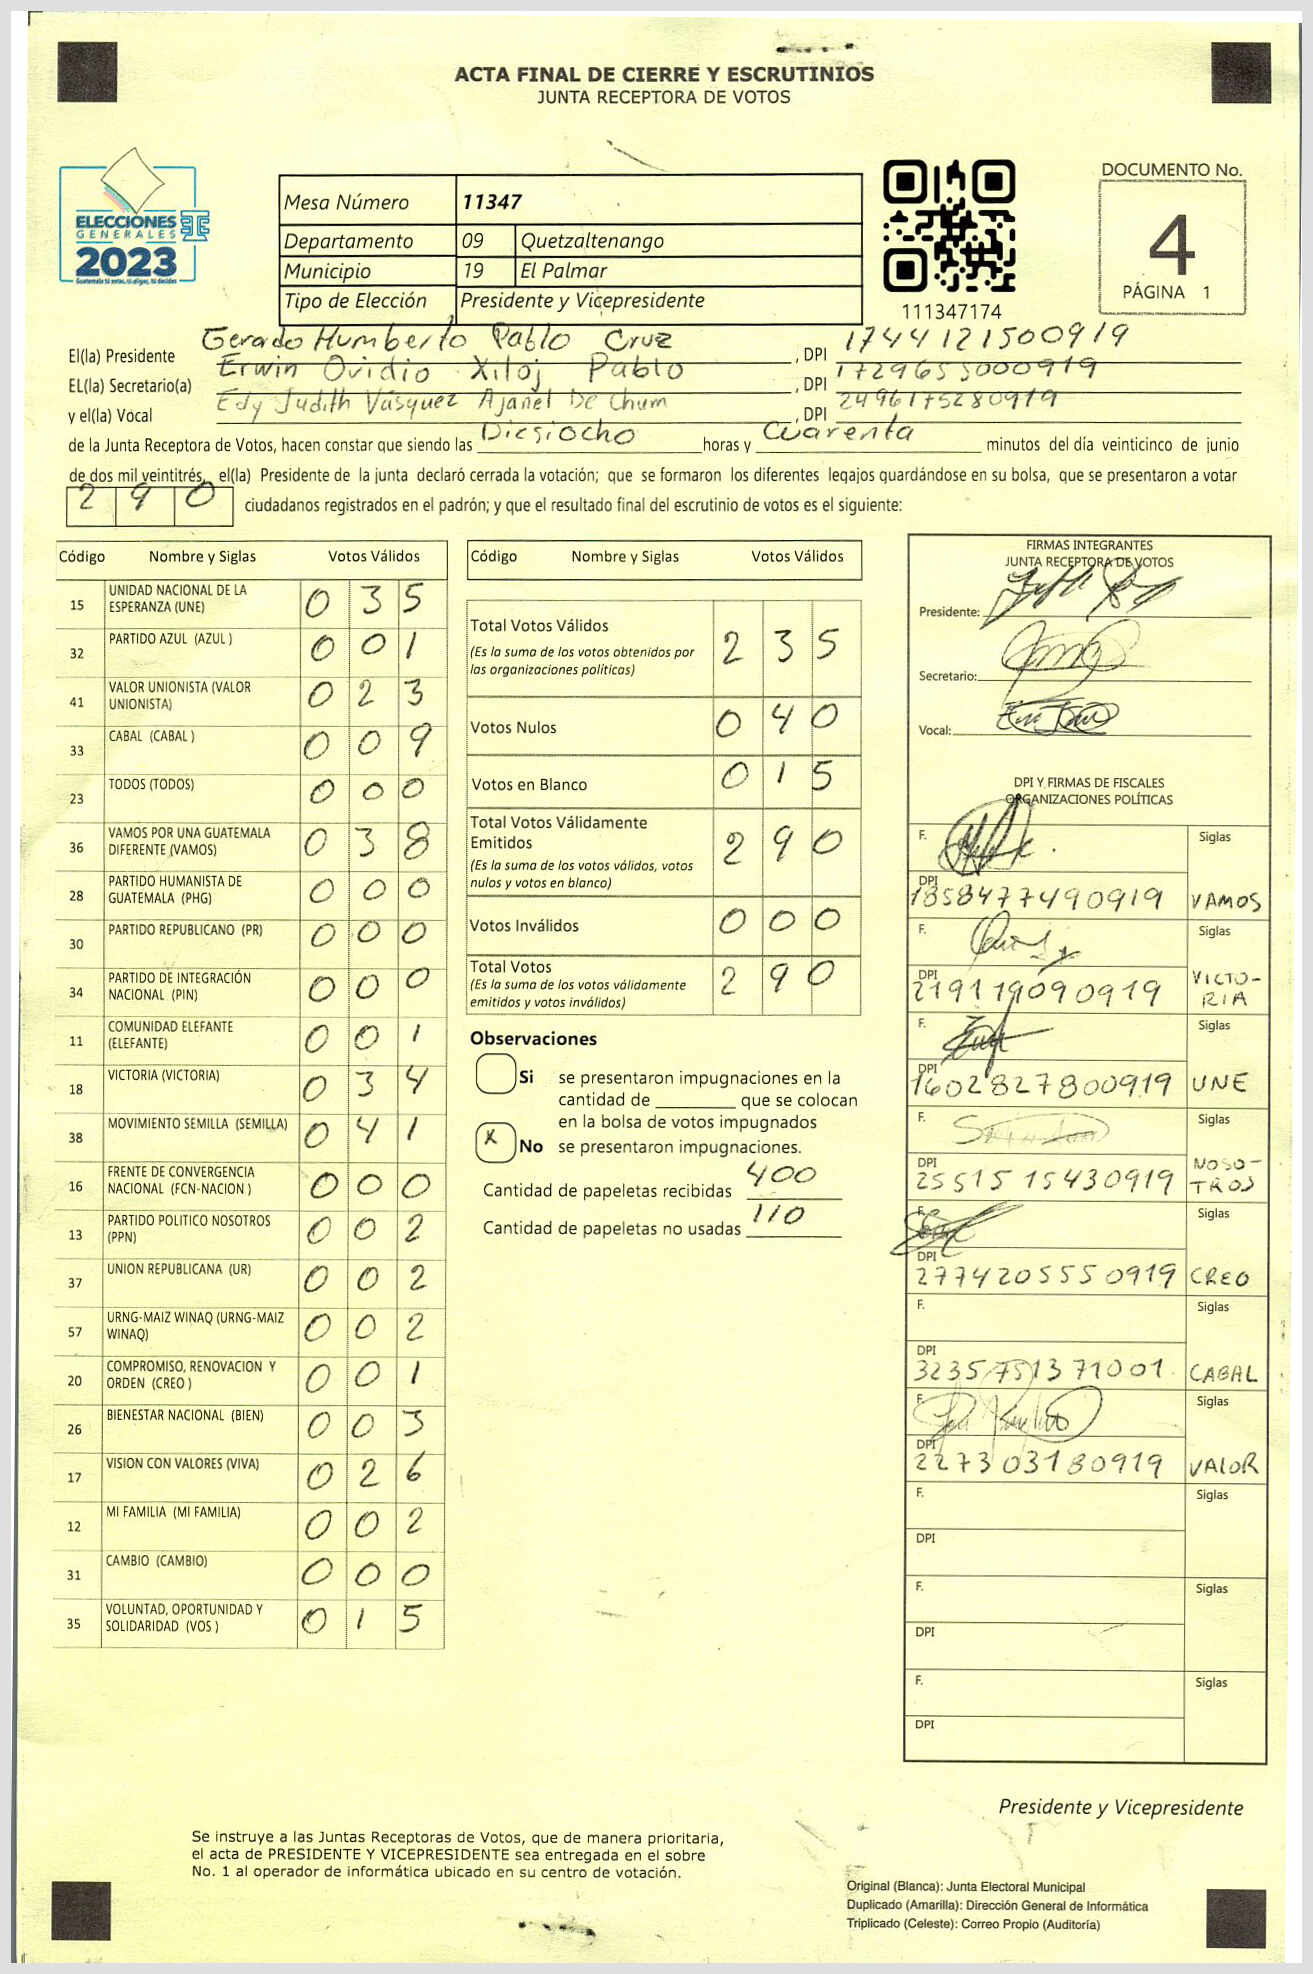 ACTA FINAL DE CIERRE Y ESCRUTINIOS
JUNTA RECEPTORA DE VOTOS
ELECCIONES
GENERALES
2023
Guatemala tú votas, tú eliges, tú decides
Mesa Número 11347
Departamento 09 Quetzaltenango
Municipio 19 El Palmar
Tipo de Elección Presidente y Vicepresidente
111347174
DOCUMENTO No.
4
PÁGINA 1
El(la) Presidente Gerado Humberto Pablo Cruz, DPI 1744121500919
EL(la) Secretario(a) Erwin Ovidio Xiloj Pablo, DPI 1729655000919
y el(la) Vocal Edy Judith Vásquez Ajanel De Chum, DPI 2496175280919
de la Junta Receptora de Votos, hacen constar que siendo las Diesiocho horas y Cuarenta minutos del día veinticinco de junio
de dos mil veintitrés, el(la) Presidente de la junta declaró cerrada la votación; que se formaron los diferentes legajos quardándose en su bolsa, que se presentaron a votar
290 ciudadanos registrados en el padrón; y que el resultado final del escrutinio de votos es el siguiente:
Código Nombre y Siglas Votos Válidos
15 UNIDAD NACIONAL DE LA ESPERANZA (UNE) 035
32 PARTIDO AZUL (AZUL ) 001
41 VALOR UNIONISTA (VALOR UNIONISTA) 023
33 CABAL (CABAL ) 009
23 TODOS (TODOS) 000
36 VAMOS POR UNA GUATEMALA DIFERENTE (VAMOS) 038
28 PARTIDO HUMANISTA DE GUATEMALA (PHG) 000
30 PARTIDO REPUBLICANO (PR) 000
34 PARTIDO DE INTEGRACIÓN NACIONAL (PIN) 000
11 COMUNIDAD ELEFANTE (ELEFANTE) 001
18 VICTORIA (VICTORIA) 034
38 MOVIMIENTO SEMILLA (SEMILLA) 041
16 FRENTE DE CONVERGENCIA NACIONAL (FCN-NACION ) 000
13 PARTIDO POLITICO NOSOTROS (PPN) 002
37 UNION REPUBLICANA (UR) 002
57 URNG-MAIZ WINAQ (URNG-MAIZ WINAQ) 002
20 COMPROMISO, RENOVACION Y ORDEN (CREO ) 001
26 BIENESTAR NACIONAL (BIEN) 003
17 VISION CON VALORES (VIVA) 026
12 MI FAMILIA (MI FAMILIA) 002
31 CAMBIO (CAMBIO) 000
35 VOLUNTAD, OPORTUNIDAD Y SOLIDARIDAD (VOS ) 015
Código Nombre y Siglas Votos Válidos
Total Votos Válidos 235
(Es la suma de los votos obtenidos por
las organizaciones políticas)
Votos Nulos 040
Votos en Blanco 015
Total Votos Válidamente
Emitidos 290
(Es la suma de los votos válidos, votos
nulos y votos en blanco)
Votos Inválidos 000
Total Votos 290
(Es la suma de los votos válidamente
emitidos y votos inválidos)
Observaciones
Si se presentaron impugnaciones en la
cantidad de ________ que se colocan
en la bolsa de votos impugnados
X No se presentaron impugnaciones.
Cantidad de papeletas recibidas 400
Cantidad de papeletas no usadas 110
FIRMAS INTEGRANTES
JUNTA RECEPTORA DE VOTOS
Presidente:
Secretario:
Vocal:
DPI Y FIRMAS DE FISCALES
ORGANIZACIONES POLÍTICAS
F. Siglas
DPI
1858477490919 VAMOS
F. Siglas
DPI
2191119090919 VICTO-
RIA
F. Siglas
DPI
1602827800919 UNE
F. Siglas
DPI
2551515430919 NOSO-
TROS
F. Siglas
DPI
2774205550919 CREO
F. Siglas
DPI
3235751371001 CABAL
F. Siglas
DPI
227303180919 VALOR
F. Siglas
DPI
F. Siglas
DPI
F. Siglas
DPI
Presidente y Vicepresidente
Se instruye a las Juntas Receptoras de Votos, que de manera prioritaria,
el acta de PRESIDENTE Y VICEPRESIDENTE sea entregada en el sobre
No. 1 al operador de informática ubicado en su centro de votación.
Original (Blanca): Junta Electoral Municipal
Duplicado (Amarilla): Dirección General de Informática
Triplicado (Celeste): Correo Propio (Auditoría)